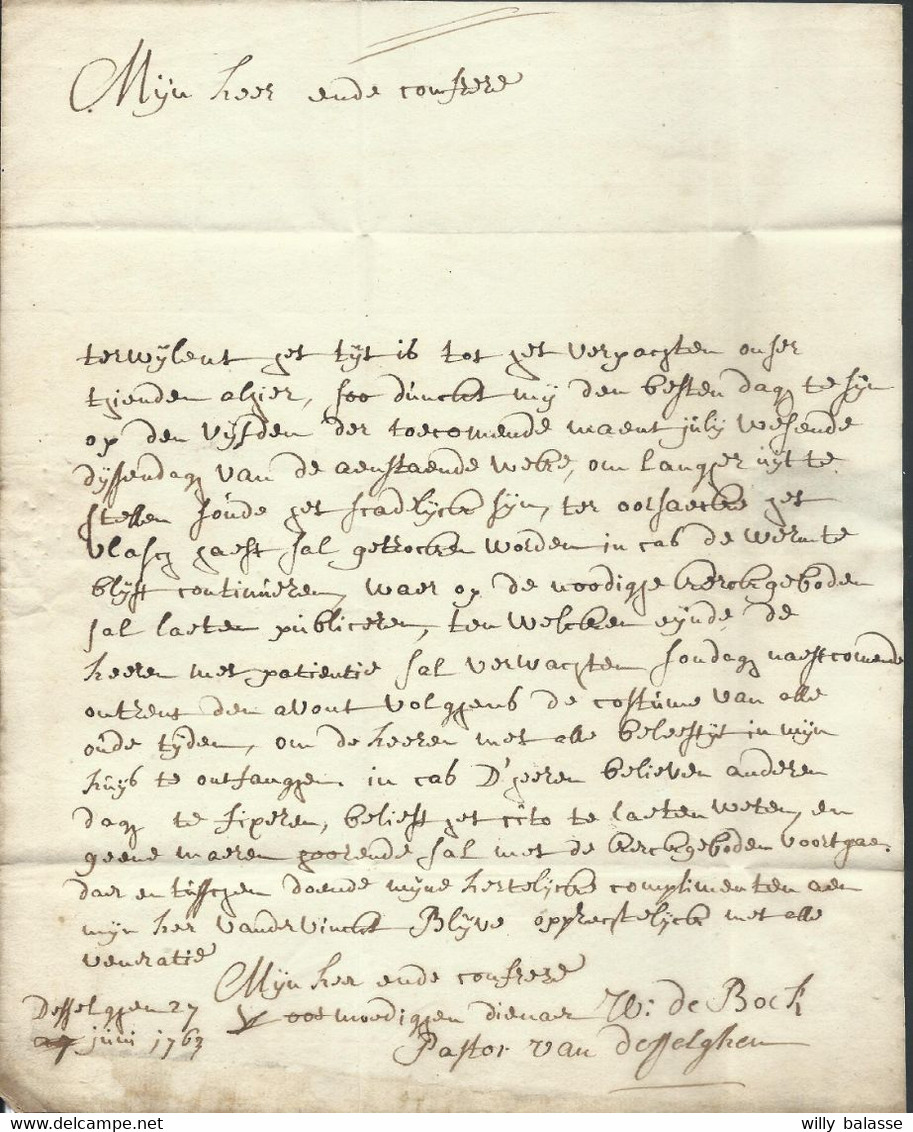 Mijn heer ende confrere
terwylent het tyt is tot het verpachten onser
thienden alhier, soo dunckt my den besten dagh te syn
op den vyfden der toecomende maent july wesende
dyssendagh van de aenstaende weke, om langher uyt te
stellen soude het scadlyck syn, ter oorsaecke het
vlasch haest sal getrocken worden in cas de wermte
blyft continueren, waer op de noodighe kerckgeboden
sal laeten publiceren, ten welcken eynde de
heeren met patientie sal verwachten sondagh naestcomende
ontrent den avont volghens de costume van alle
oude tyden, om de heeren met alle beleeftyt in myn
huys te ontfanghen in cas d'heeren believen anderen
dagh te fixeren, belieft het cito te laeten weten, en
geene maeren hoorende sal met de kerckgeboden voortgaen
daer en tusschen doende myne hertelycke complimenten aen
myn her vandervinckt Blyve opprechtelyck met alle
veneratie
Mijn heer ende confrere
Desselghen 27
juni 1763
V ootmoedighen dienaer W: de Bock
Pastor van desselghem
willy balasse